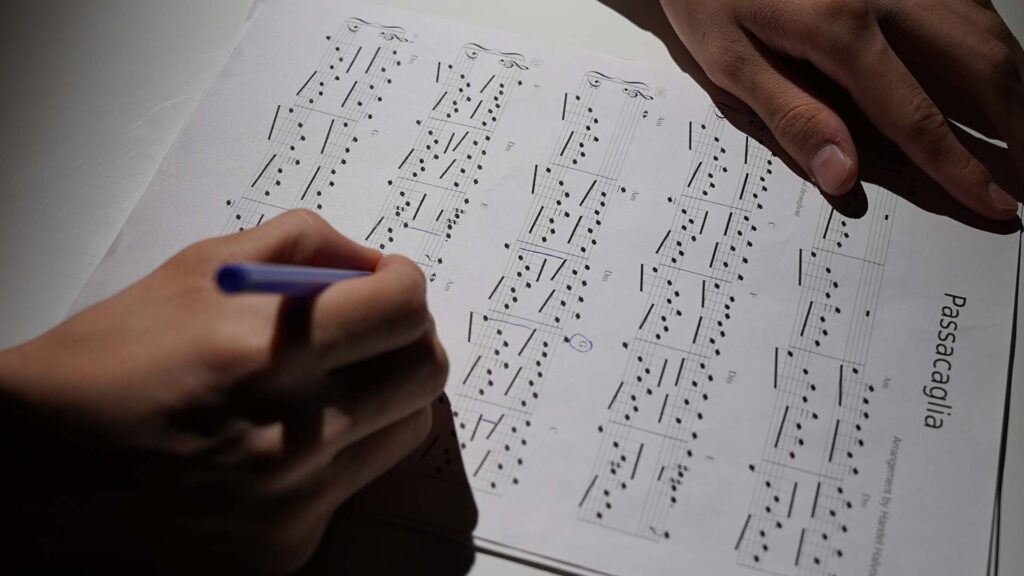 Passacaglia
Arrangement by Handel
Am Dm
C F Dm E
Am Am Dm G C
F Dm E Am
Dm G